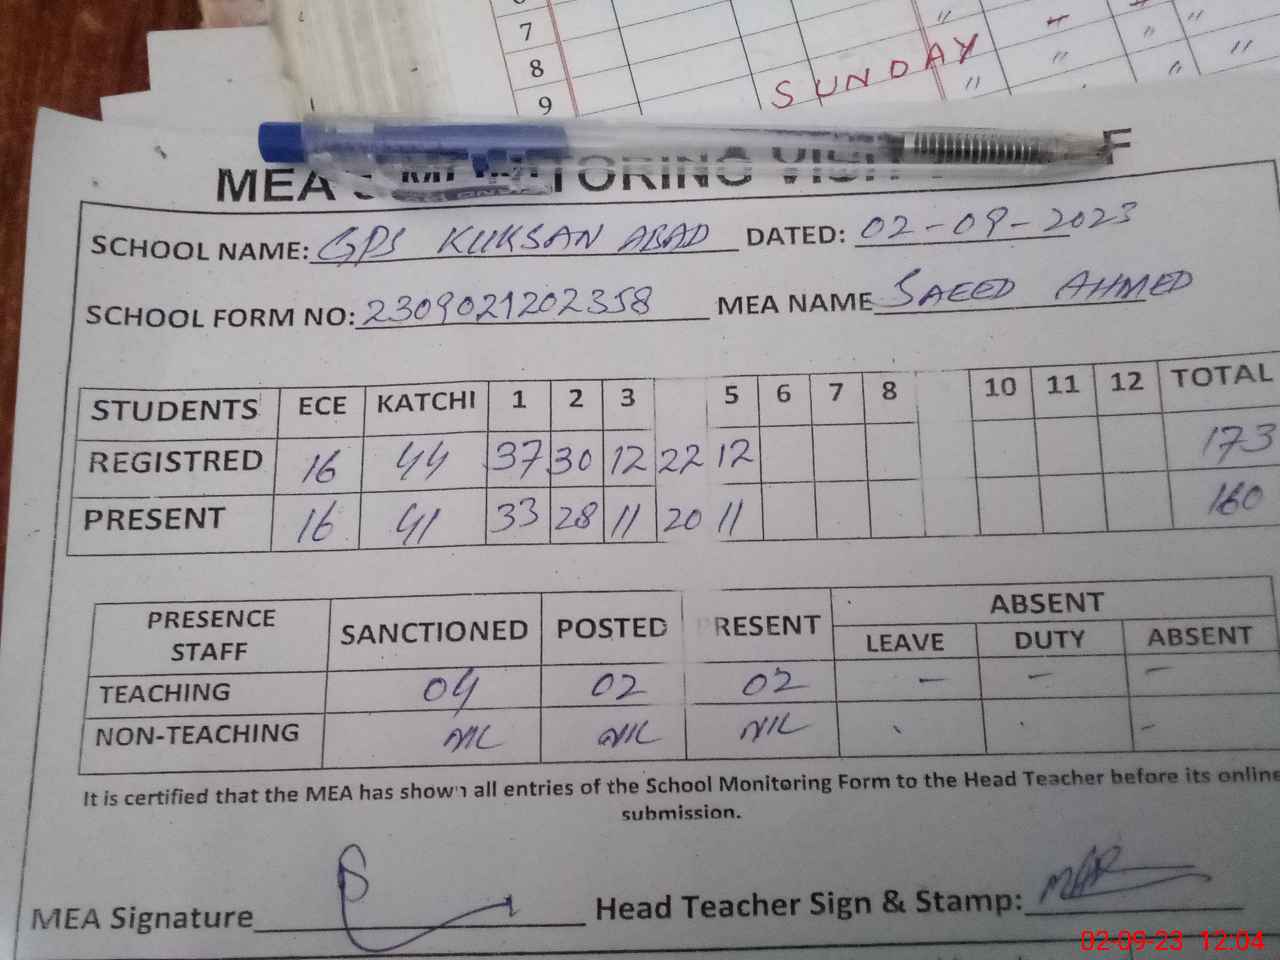 7
8
SUNDAY
9
MEA'S MONITORING VISIT
SCHOOL NAME: GPS KUKSAN ABAD DATED: 02-09-2023
SCHOOL FORM NO: 2309021202358 MEA NAME SAEED AHMED
STUDENTS ECE KATCHI 1 2 3 5 6 7 8 10 11 12 TOTAL
REGISTRED 16 44 37 30 12 22 12 173
PRESENT 16 41 33 28 11 20 11 160
PRESENCE STAFF SANCTIONED POSTED PRESENT ABSENT
LEAVE DUTY ABSENT
TEACHING 04 02 02 - - -
NON-TEACHING NIL NIL NIL - - -
It is certified that the MEA has shown all entries of the School Monitoring Form to the Head Teacher before its online
submission.
MEA Signature Head Teacher Sign & Stamp:
02-09-23 12:04